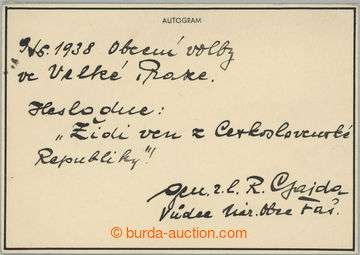 AUTOGRAM
9/5. 1938 Obecní volby
ve Velké Praze.
Heslo dne:
„Židi ven z Československé
Republiky"!
gen. z. l. R. Gajda
Vůdce Nár. Obce Faš.
© burda-auction.com